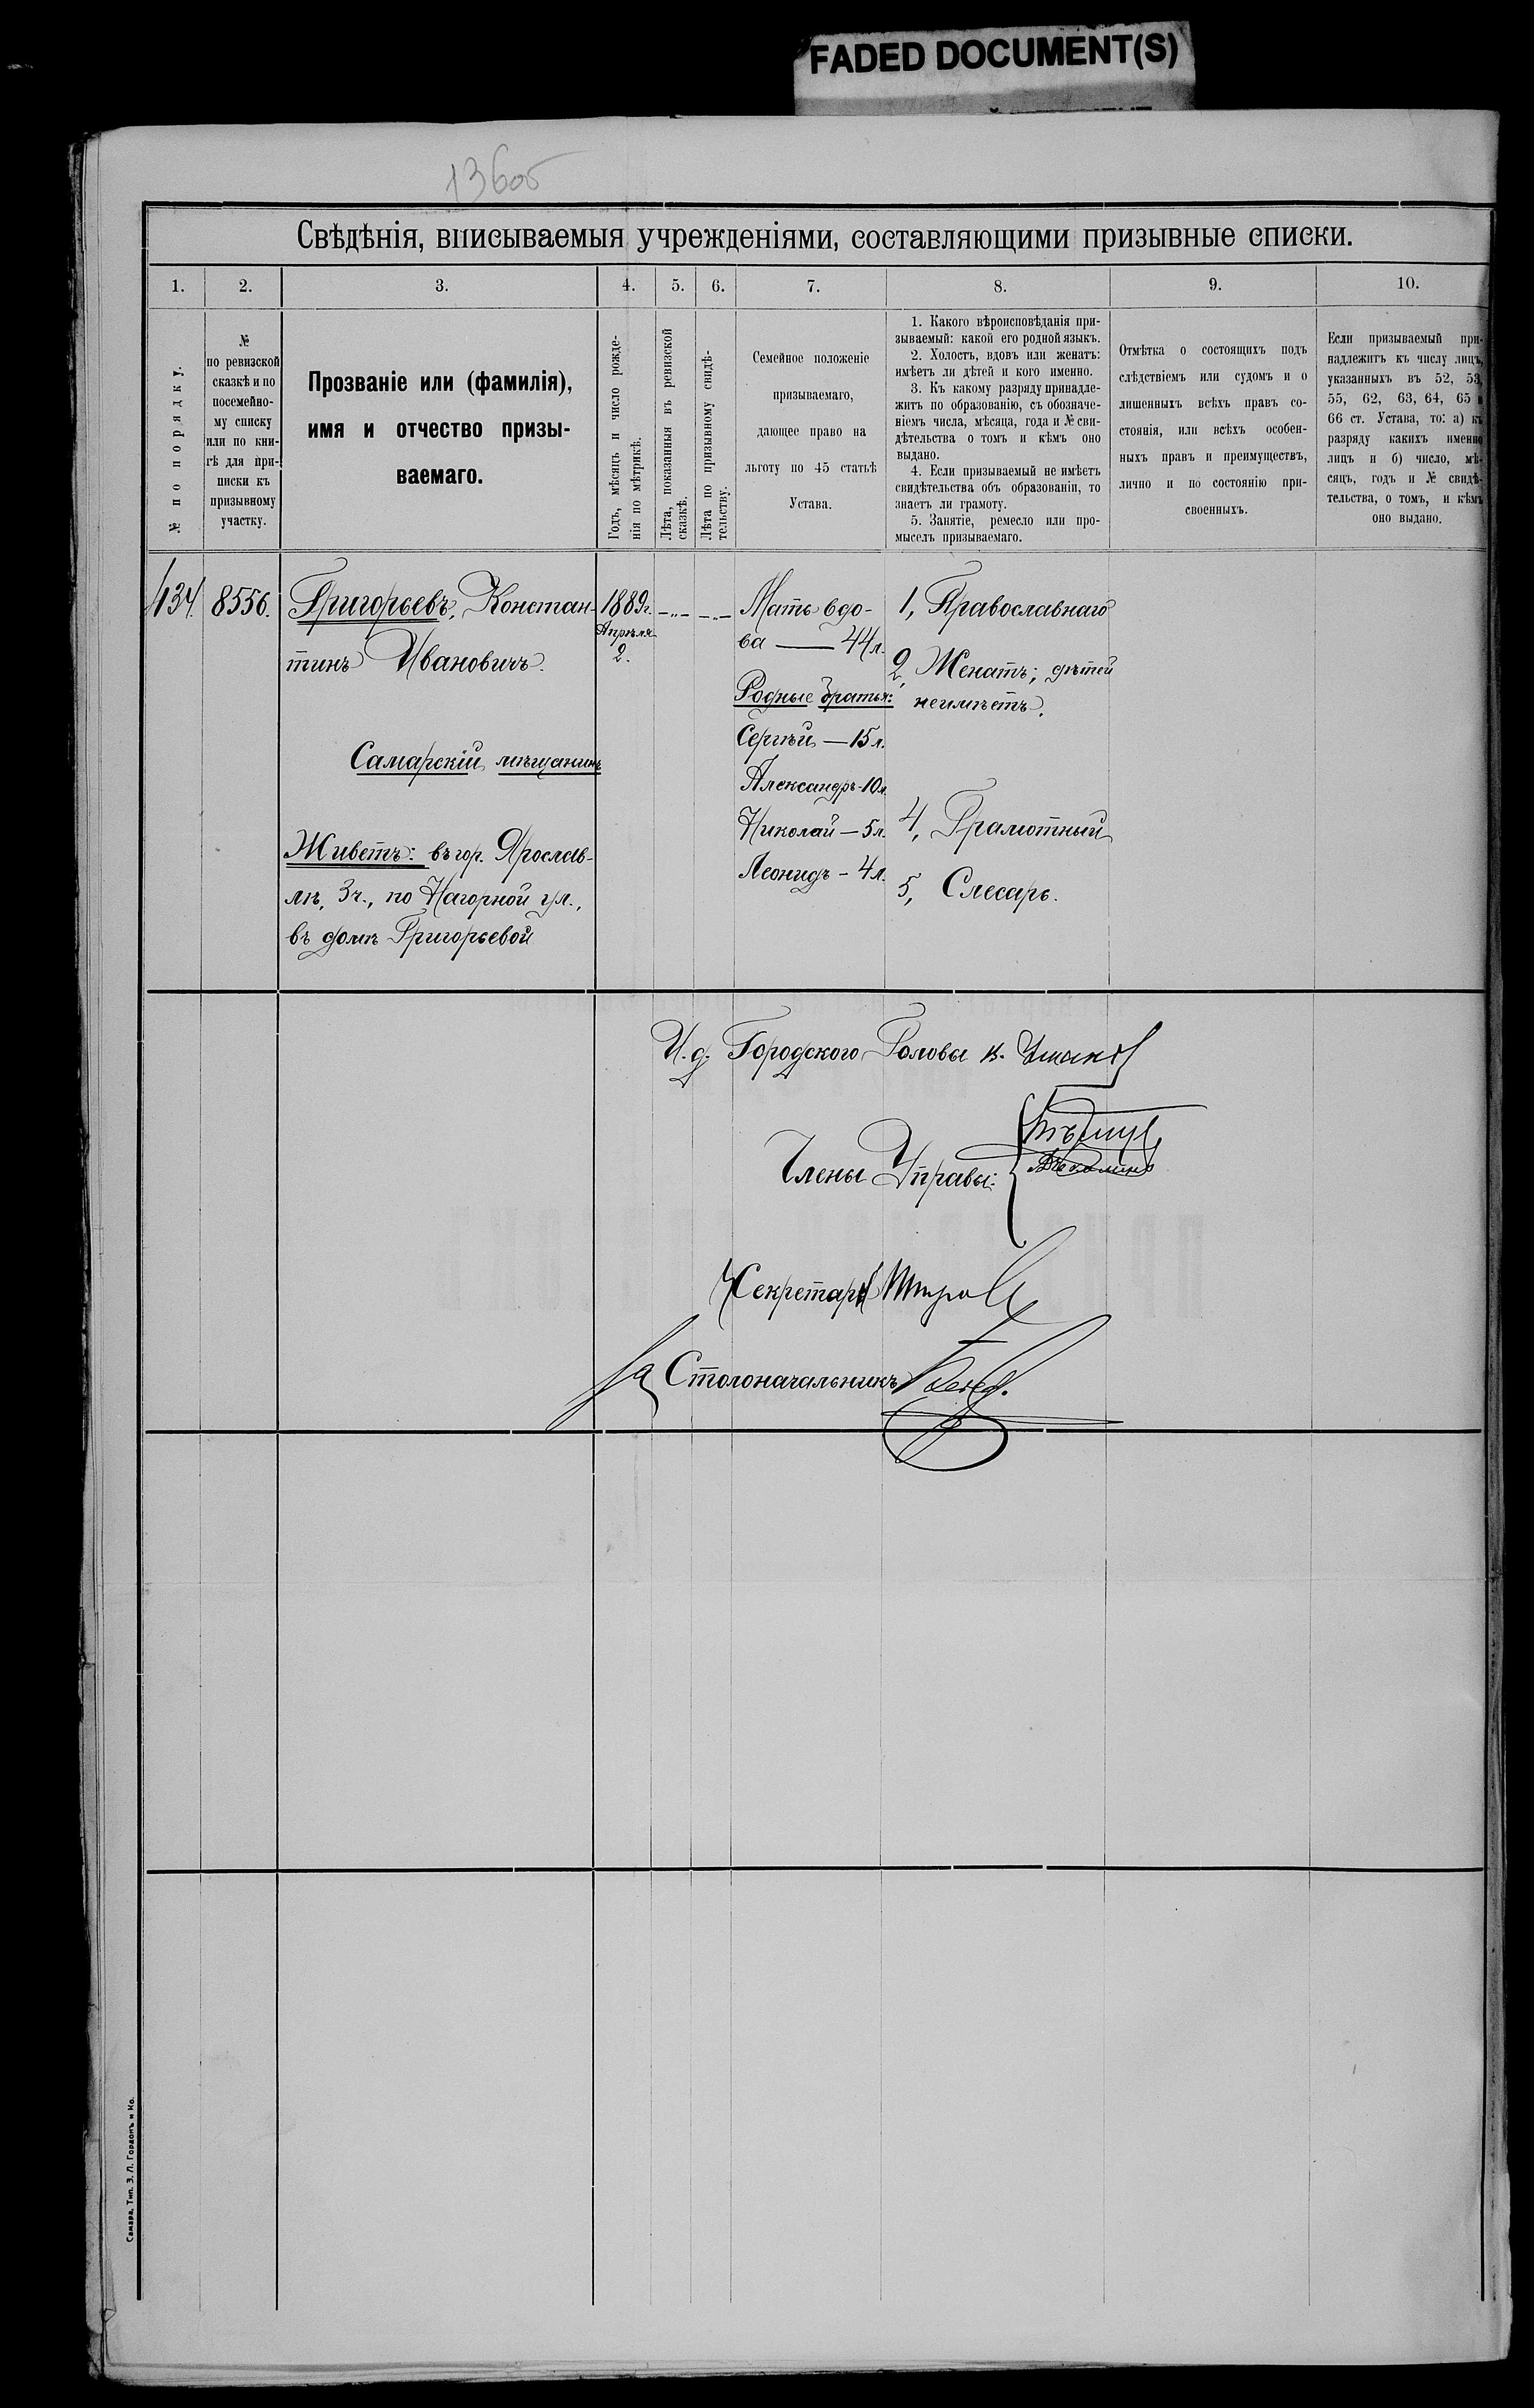 FADED DOCUMENT(S)
13605
Свѣдѣнія, вписываемыя учрежденіями, составляющими призывные списки.
1. 2. 3. 4. 5. 6. 7. 8. 9. 10.
№ по порядку.
№
по ревизской
сказкѣ и по
посемейно-
му списку
или по кни-
гѣ для при-
писки къ
призывному
участку.
Прозваніе или (фамилія),
имя и отчество призы-
ваемаго.
Годъ, мѣсяцъ и число рожде-
нія по метрикѣ.
Лѣта, показанныя въ ревизской
сказкѣ.
Лѣта по призывному свидѣ-
тельству.
Семейное положеніе
призываемаго,
дающее право на
льготу по 45 статьѣ
Устава.
1. Какого вѣроисповѣданія при-
зываемый: какой его родной языкъ.
2. Холостъ, вдовъ или женатъ:
имѣетъ ли дѣтей и кого именно.
3. Къ какому разряду принадле-
житъ по образованію, съ обозначе-
ніемъ числа, мѣсяца, года и № сви-
дѣтельства о томъ и кѣмъ оно
выдано.
4. Если призываемый не имѣетъ
свидѣтельства объ образованіи, то
знаетъ ли грамоту.
5. Занятіе, ремесло или про-
мыселъ призываемаго.
Отмѣтка о состоящихъ подъ
слѣдствіемъ или судомъ и о
лишенныхъ всѣхъ правъ со-
стоянія, или всѣхъ особен-
ныхъ правъ и преимуществъ,
лично и по состоянію при-
своенныхъ.
Если призываемый при-
надлежитъ къ числу лицъ,
указанныхъ въ 52, 53,
55, 62, 63, 64, 65 и
66 ст. Устава, то: а) къ
разряду какихъ именно
лицъ и б) число, мѣ-
сяцъ, годъ и № свидѣ-
тельства, о томъ, и кѣмъ
оно выдано.
434. 8556.
Григорьевъ, Констан-
тинъ Ивановичъ.
Самарскій мѣщанинъ
Живетъ: въ гор. Ярослав-
лѣ, 3ч., по Нагорной ул.,
въ домѣ Григорьевой
1889г.
Апрѣля
2.
-„-
-„-
Мать вдо-
ва — 44л.
Родные братья:
Сергѣй — 15 л.
Александръ - 10л.
Николай — 5л.
Леонидъ - 4л.
1, Православнаго
2, Женатъ; дѣтей
неимѣетъ.
4, Грамотный
5, Слесарь.
И. д. Городского Головы
Члены Управы:
Секретарь
За Столоначальникъ
Самара, Тип. З. Л. Гордонъ и Ко.